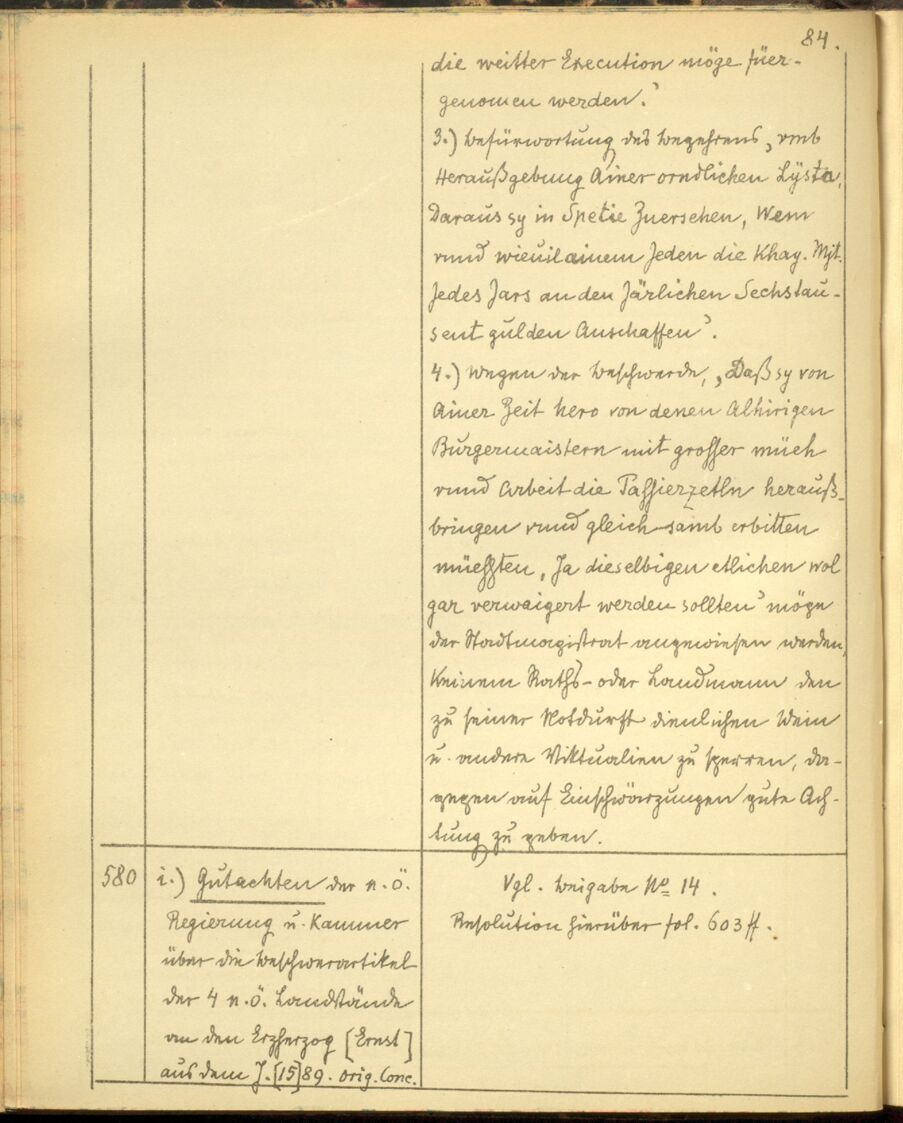 84.
die weitter Execution möge füer-
genomen werden.'
3.) Befürwortung des Begehrens, 'vmb
Heraußgebung Ainer orndlichen Lÿsta,
Daraus sy in Spetie Zuersehen, Wem
vnnd wieuil ainem Jeden die Khay. Mjt.
Jedes Jars an den Järlichen Sechstau-
sent gulden Anschaffen'.
4.) Wegen der Beschwerde, 'Daß sy von
Ainer Zeit hero von denen Alhirigen
Burgermaistern mit grosser müeh
vnnd Arbeit die Passierzetln herauß-
bringen vnnd gleich samb erbitten
müeßten, Ja dieselbigen etlichen wol
gar verwaigert werden sollten' möge
der Stadtmagistrat angewiesen werden,
Keinem Raths- oder Landmann den
zu seiner Notdurft dienlichen Wein
u. andere Viktualien zu sperren, da-
gegen auf Einschwärzungen gute Ach-
tung zu geben.
580
i.) Gutachten der n.ö.
Regierung u. Kammer
über die Beschwerartikel
der 4 n.ö. Landstände
an den Erzherzog [Ernst]
aus dem J. [15]89. Orig. Conc.
Vgl. Beigabe No 14.
Resolution hierüber fol. 603 ff.